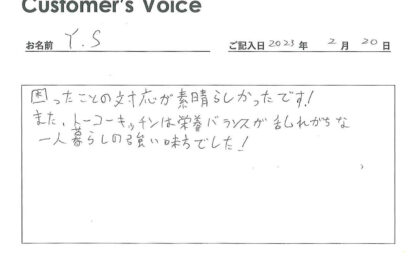 Customer's Voice
お名前 Y.S ご記入日 2023 年 2 月 20 日
困ったことの対応が素晴らしかったです!
また、トーコーキッチンは栄養バランスが乱れがちな
一人暮らしの強い味方でした!